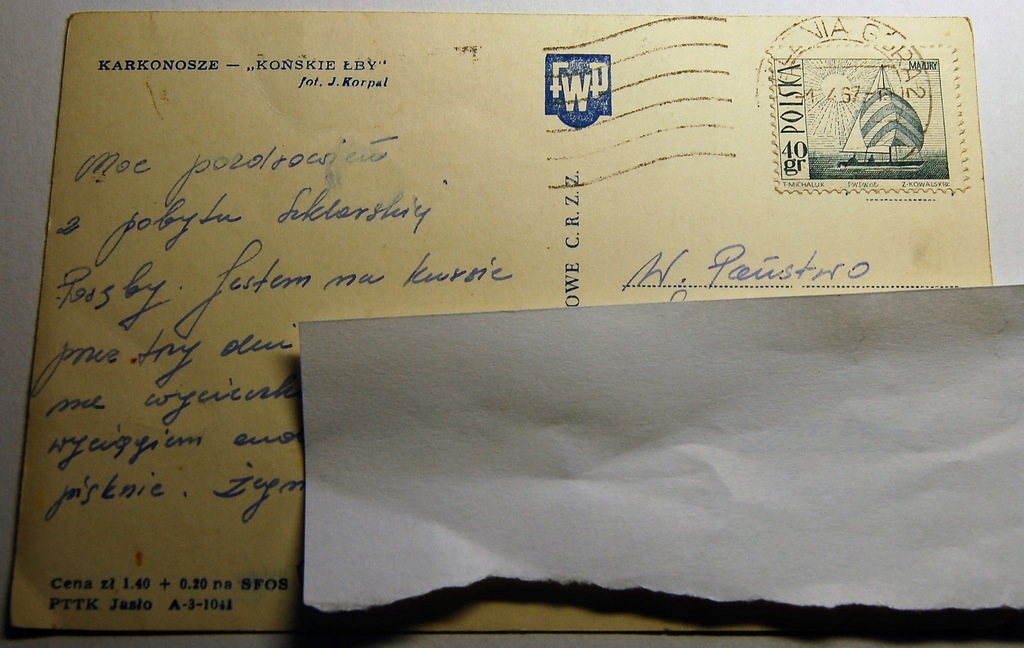 KARKONOSZE — „KOŃSKIE ŁBY"
fot. J. Korpal
Moc pozdrowień
z pobytu Szklarskiej
Poręby. Jestem na kursie
przez trzy dni
na
wyciągiem
pięknie.
Cena zł 1.40 + 0.20 na SFOS
PTTK Jasło A-3-1041
FWP
OWE C. R. Z. Z.
POLSKA
40
gr
MAZURY
T·MICHALUK PWPW60 Z·KOWALSKI SC
W. Państwo